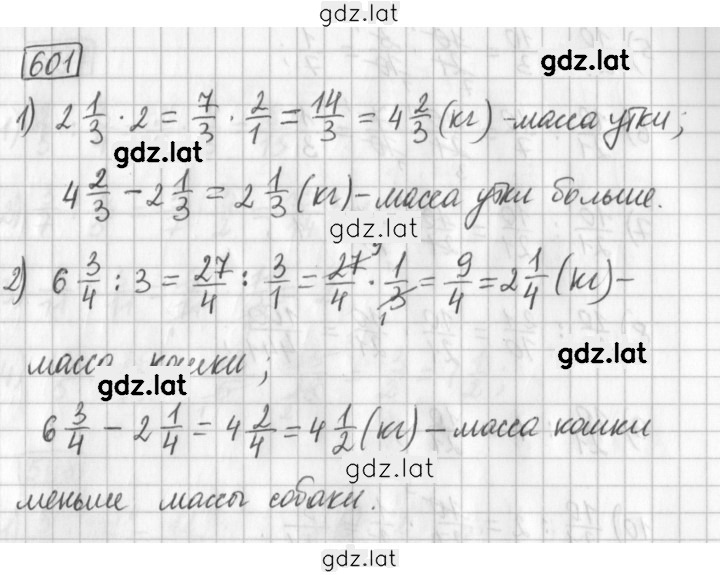 gdz.lat
601
gdz.lat
1) 2 1/3 · 2 = 7/3 · 2/1 = 14/3 = 4 2/3 (кг) - масса утки;
gdz.lat
4 2/3 - 2 1/3 = 2 1/3 (кг) - масса утки больше.
gdz.lat
2) 6 3/4 : 3 = 27/4 : 3/1 = 27 9/4 · 1/3 1 = 9/4 = 2 1/4 (кг) -
gdz.lat
масса кошки;
gdz.lat
6 3/4 - 2 1/4 = 4 2/4 = 4 1/2 (кг) - масса кошки
gdz.lat
меньше массы собаки.
gdz.lat